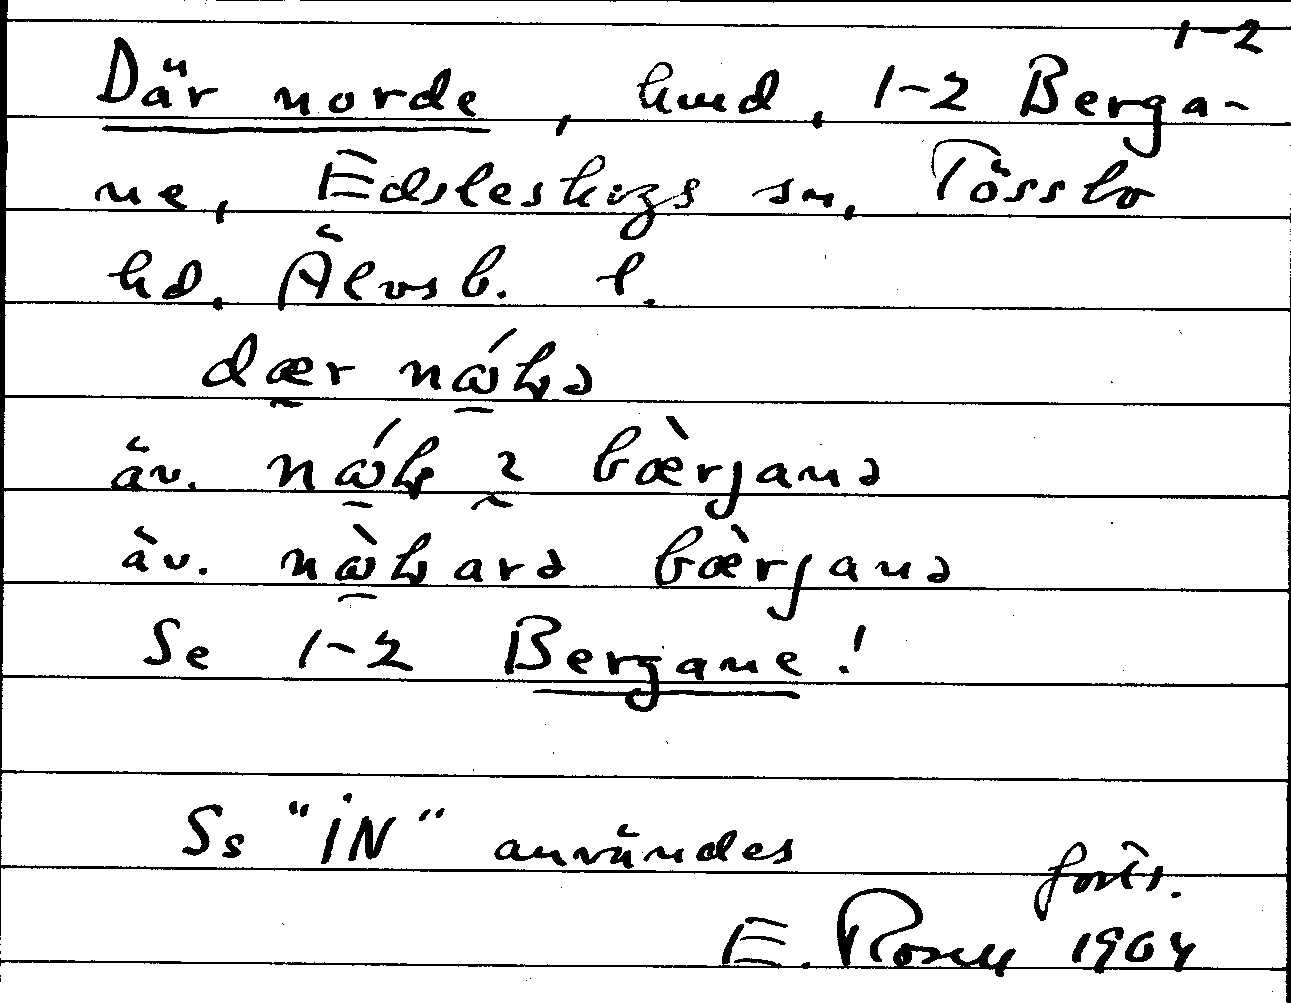 1-2
Där norde, hmd, 1-2 Berga-
ne, Edsleskogs sn, Tössbo
hd. Älvsb. l.
dær
äv. bæ̀rjanə
äv. bæ̀rjanə
Se 1-2 Bergane!
Ss "IN" användes
forts.
E. Rosell 1964